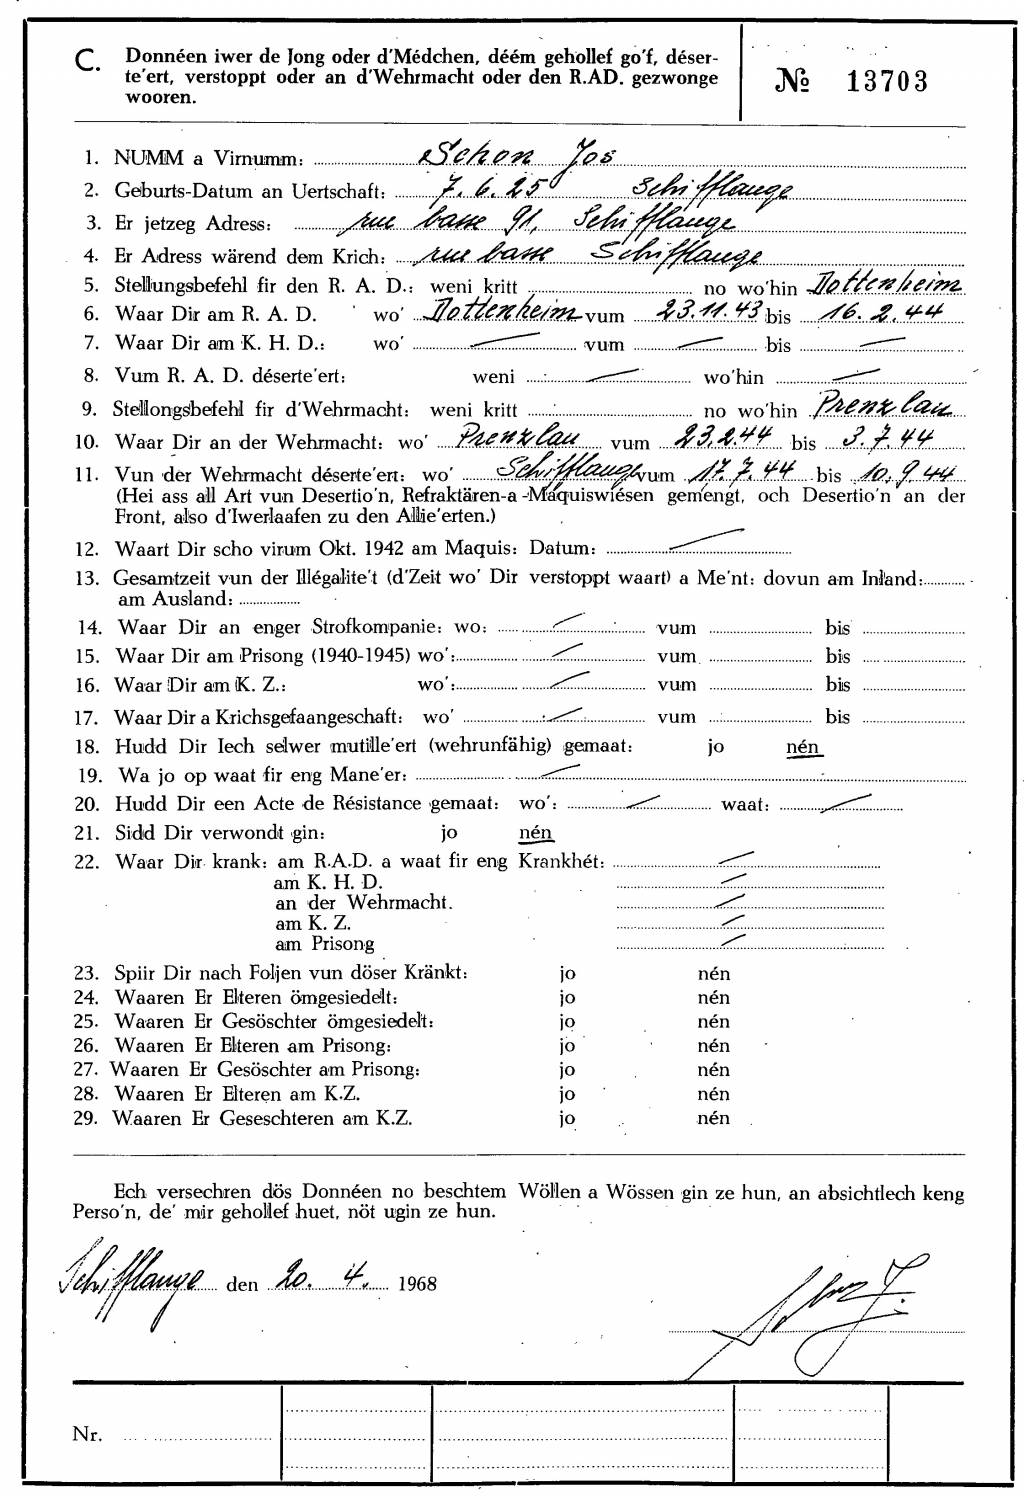 C. Donnéen iwer de Jong oder d'Médchen, déém gehollef go'f, déser-
te'ert, verstoppt oder an d'Wehrmacht oder den R.AD. gezwonge
wooren.
№ 13703
1. NUMM a Virnumm: Schon Jos
2. Geburts-Datum an Uertschaft: 7.6.25 Schifflange
3. Er jetzeg Adress: rue basse 91, Schifflange
4. Er Adress wärend dem Krich: rue basse Schifflange
5. Stellungsbefehl fir den R. A. D.: weni kritt no wo'hin Dottenheim
6. Waar Dir am R. A. D. wo' Dottenheim vum 23.11.43 bis 16.2.44
7. Waar Dir am K. H. D.: wo' — vum — bis —
8. Vum R. A. D. déserte'ert: weni — wo'hin —
9. Stellongsbefehl fir d'Wehrmacht: weni kritt no wo'hin Prenzlau
10. Waar Dir an der Wehrmacht: wo' Prenzlau vum 23.2.44 bis 3.7.44
11. Vun der Wehrmacht déserte'ert: wo' Schifflange vum 17.7.44 bis 10.9.44
(Hei ass all Art vun Desertio'n, Refraktären-a -Maquiswiésen geméngt, och Desertio'n an der
Front, also d'Iwerlaafen zu den Allie'erten.)
12. Waart Dir scho virum Okt. 1942 am Maquis: Datum: —
13. Gesamtzeit vun der Illégalite't (d'Zeit wo' Dir verstoppt waart) a Me'nt: dovun am Inland:
am Ausland:
14. Waar Dir an enger Strofkompanie: wo: — vum bis
15. Waar Dir am Prisong (1940-1945) wo': — vum bis
16. Waar Dir am K. Z.: wo': — vum bis
17. Waar Dir a Krichsgefaangeschaft: wo' — vum bis
18. Hudd Dir Iech selwer mutille'ert (wehrunfähig) gemaat: jo nén
19. Wa jo op waat fir eng Mane'er: —
20. Hudd Dir een Acte de Résistance gemaat: wo': — waat: —
21. Sidd Dir verwondt gin: jo nén
22. Waar Dir krank: am R.A.D. a waat fir eng Krankhét: —
am K. H. D. —
an der Wehrmacht. —
am K. Z. —
am Prisong —
23. Spiir Dir nach Foljen vun döser Kränkt: jo nén
24. Waaren Er Elteren ömgesiedelt: jo nén
25. Waaren Er Gesöschter ömgesiedelt: jo nén
26. Waaren Er Elteren am Prisong: jo nén
27. Waaren Er Gesöschter am Prisong: jo nén
28. Waaren Er Elteren am K.Z. jo nén
29. Waaren Er Geseschteren am K.Z. jo nén
Ech versechren dös Donnéen no beschtem Wöllen a Wössen gin ze hun, an absichtlech keng
Perso'n, de' mir gehollef huet, nöt ugin ze hun.
Schifflange den 20. 4. 1968
Nr.